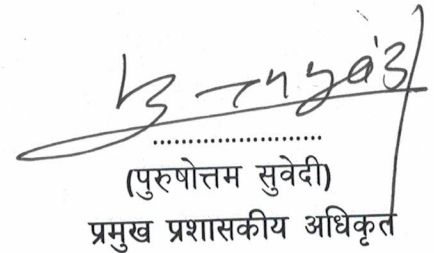 ......................
(पुरुषोत्तम सुवेदी)
प्रमुख प्रशासकीय अधिकृत